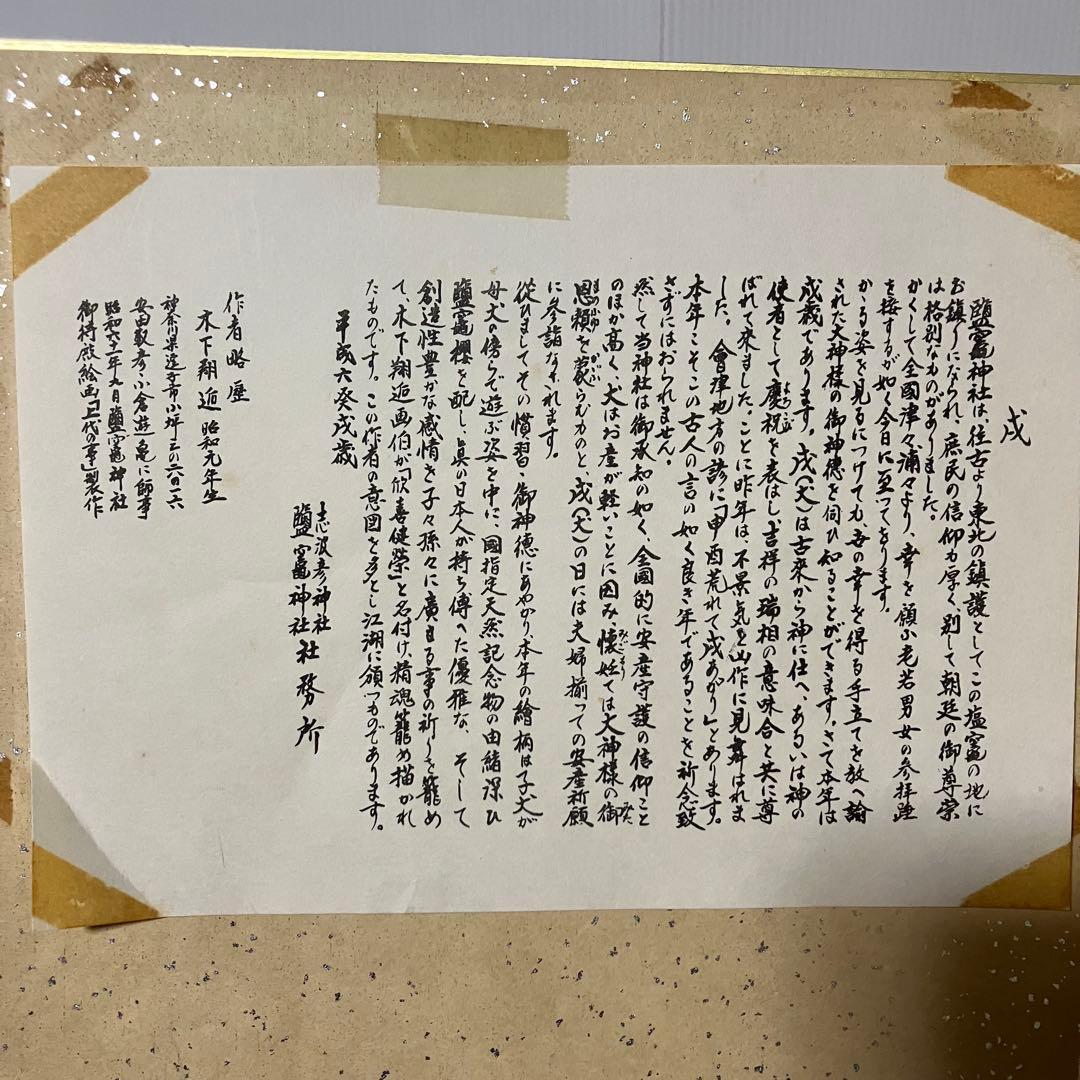 戌
鹽竈神社は、往古より東北の鎮護としてこの塩竈の地に
お鎮りになられ、庶民の信仰も厚く、別して朝廷の御尊崇
は格別なものがありました。
かくして全国津々浦々より、幸を願ふ老若男女の参拝踵
を接するが如く今日に至ってをります。
かゝる姿を見るにつけても、吾の幸を得る手立てを教へ諭
された大神様の御神徳を伺ひ知ることができます。さて本年は
戌歳であります。戌(犬)は古来から神に仕へ、あるいは神の
使者として慶祝を表はし、吉祥の瑞相の意味合と共に尊
ばれて来ました。ことに昨年は、不景気と凶作に見舞はれま
した。會津地方の諺に「申酉荒れて戌あがり」とあります。
本年こそこの古人の言の如く良き年であることを祈念致
さずにはおられません。
然して当神社は御承知の如く、全国的に安産守護の信仰こと
のほか高く、犬はお産が軽いことに因み、懐妊ては大神様の御
恩頼を蒙らむものと戌(犬)の日には夫婦揃っての安産祈願
に参詣なされます。
従ひましてその慣習・御神徳にあやかり、本年の繪柄は子犬が
母犬の傍らで遊ぶ姿を中に、國指定天然記念物の由緒深ひ
鹽竈櫻を配し、真の日本人が持ち傳へた優雅な、そして
創造性豊かな感情を子々孫々に廣まる事の祈りを籠め
て、木下翔逅画伯が「欣喜健榮」と名付け、精魂籠め描かれ
たものです。この作者の意図を多とし江湖に頒つものであります。
平成六癸戌歳
志波彦神社
鹽竈神社 社務所
作者略歴
木下翔逅 昭和元年生
神奈川県逗子市小坪三の六の一六
安田靫彦・小倉遊亀に師事
昭和六二年九月鹽竈神社
御持殿絵画「上代の事」製作